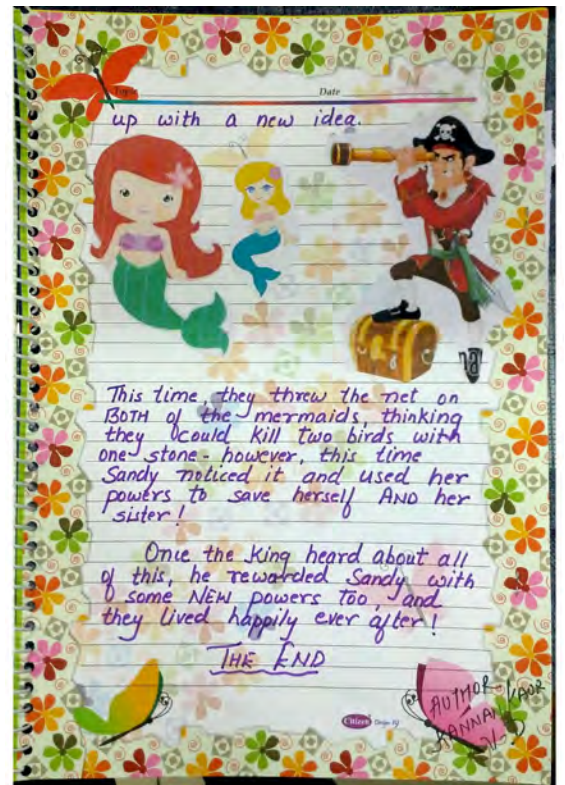 Topic Date
up with a new idea.
This time, they threw the net on
BOTH of the mermaids, thinking
they could kill two birds with
one stone - however, this time
Sandy noticed it and used her
powers to save herself AND her
sister!
Once the King heard about all
of this, he rewarded Sandy with
some NEW powers too, and
they lived happily ever after!
THE END
Citizen
AUTHOR
KANNAN KAUR
V-D